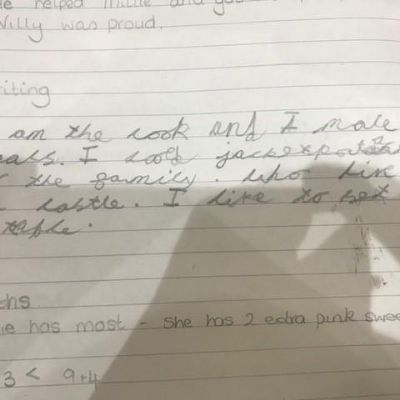 helped Millie and
Willy was proud.
iting
am the cook and I make
eals. I cook jacket potatos
the family. who live
castle. I like to set
table.
ths
ie has most - She has 2 extra pink swee
3 < 9+4